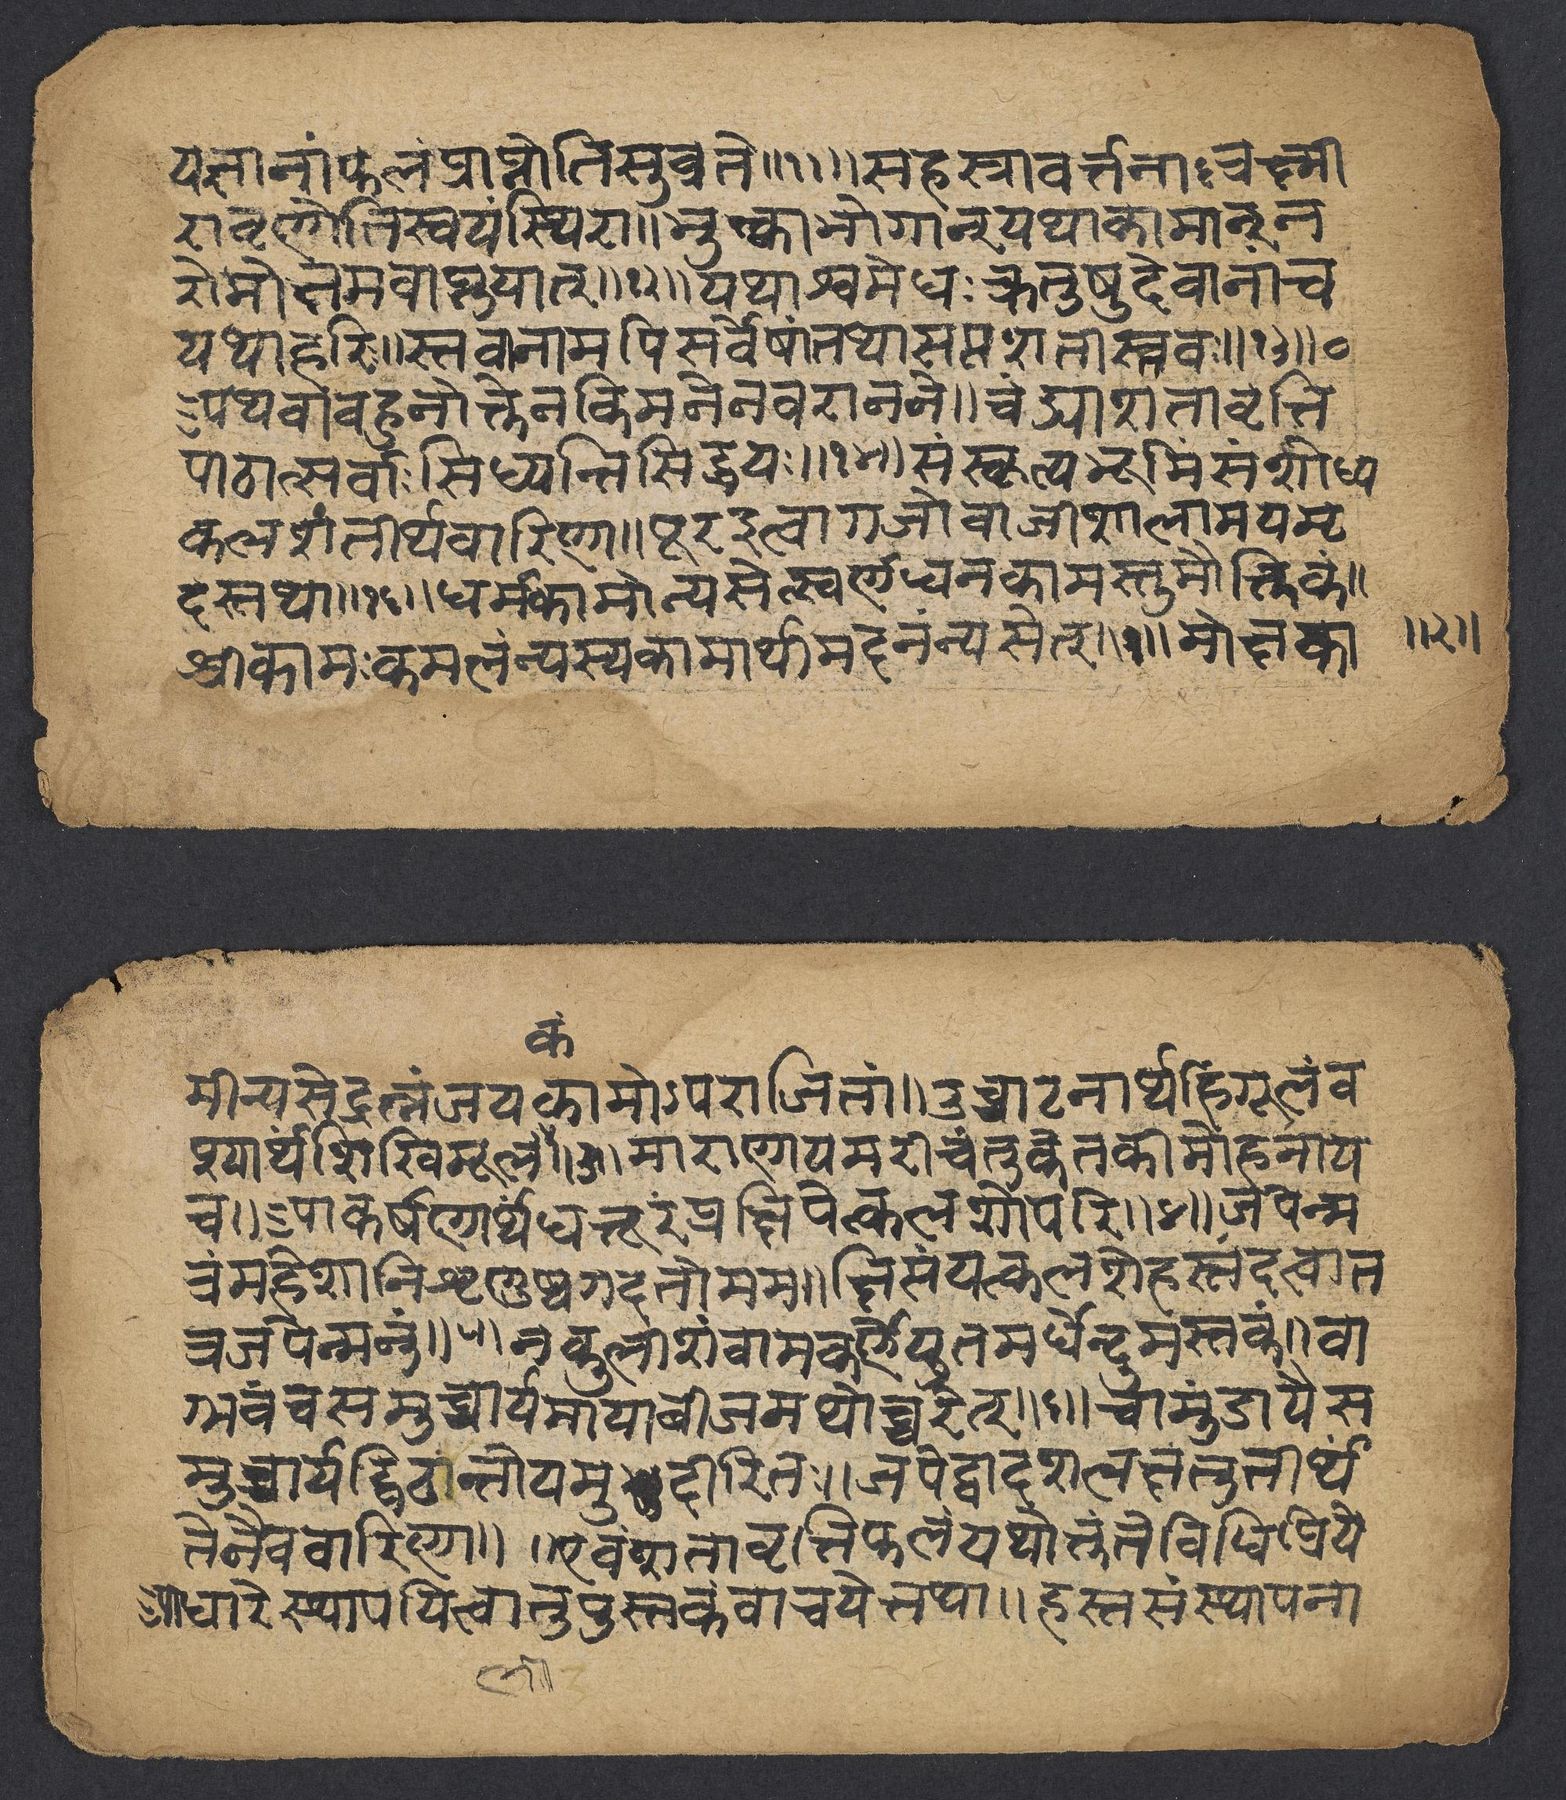 यज्ञानां फलं प्राप्नोति सुव्रते॥११॥ सहस्रावर्त्तनाल्लक्ष्मी
रावृणोति स्वयं स्थिरा॥ भुक्त्वा भोगान् यथाकामान् न
रो मोक्षमवाप्नुयात्॥१२॥ यथाश्वमेधः क्रतुषु देवानां च
यथा हरिः॥ स्तवानामपि सर्वेषां तथा सप्तशतीस्तवः॥१३॥०
अथवा बहुनोक्तेन किमनेन वरानने॥ चंड्याशतावृत्ति
पाठात्सर्वाः सिध्यन्ति सिद्धयः॥१४॥ संस्कृत्य भूमिं संशोध्य
कलशं तीर्थवारिणा॥ पूरइत्वा गजो वाजीशालामयमृ
दस्तथा॥१॥ धर्मकामो न्यसेत्स्वर्णं धनकामस्तु मौक्तिकं॥
श्रीकामः कमलं न्यस्य कामार्थी मदनं न्यसेत्॥२॥ मोक्षका
॥२॥
कं
मी न्यसेद्रत्नं जयकामोऽपराजितां॥ उच्चाटनार्थं हिंगूलं व
श्यार्थं शिखिमूलं॥३॥ मारणाय मरीचं तु केतकी मोहनाय
च॥ आकर्षणार्थं धत्तूरं प्रक्षिपेत्कलशोपरि॥४॥ जपेन्म
त्रं महेशानि शृणुष्व गदतो मम॥ क्षिप्तं यत्कलशे हस्तं दत्वा त
त्र जपेन्मनुं॥५॥ नकुलीशं वामकर्णयुतमर्धेन्दुमस्तकं॥ वा
ग्भवं च समुच्चार्य मायाबीजमथोच्चरेत्॥६॥ चामुंडायै स
मुच्चार्य द्विठान्तोयमुदीरितः॥ जपेद्वादशलक्षं तु तीर्थं
तेनैव वारिणा॥ ॥एवं शतावृत्तिफलं यथोक्तं ते विधि प्रिये
आधारे स्थापयित्वा तु पुस्तकं वाचयेत्तथा॥ हस्तसंस्थापना